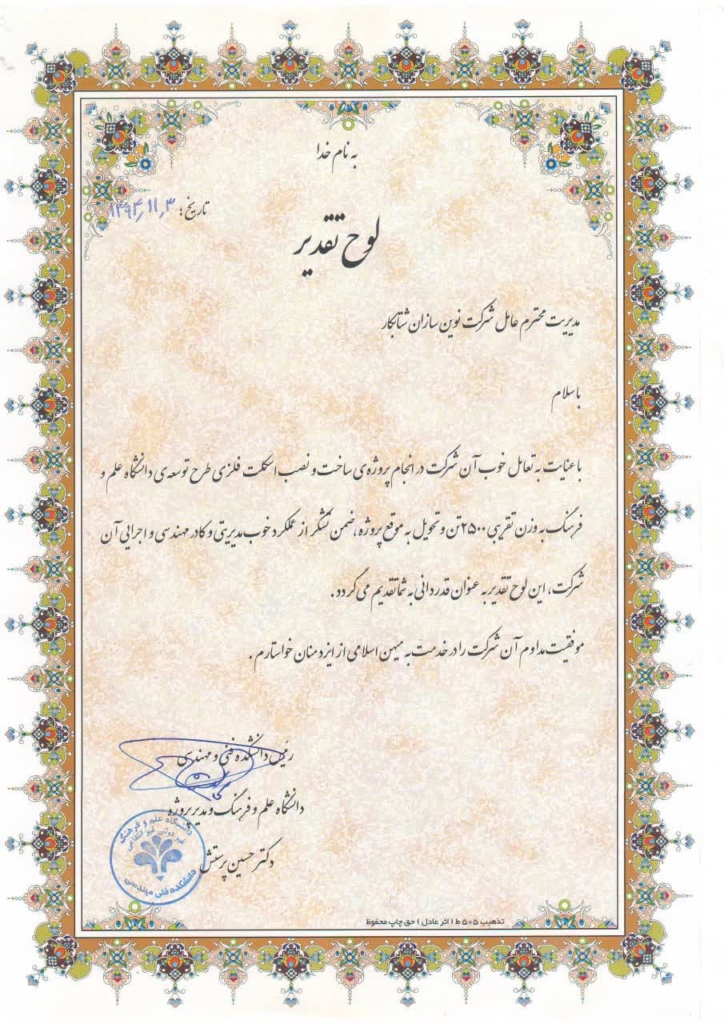 به نام خدا
تاریخ: ۱۳۹۴٫۱۱٫۳
لوح تقدیر
مدیریت محترم عامل شرکت نوین سازان شتابکار
باسلام
با عنایت به تعامل خوب آن شرکت در انجام پروژه‌ی ساخت و نصب اسکلت فلزی طرح توسعه‌ی دانشگاه علم و
فرهنگ به وزن تقریبی ۲۵۰۰ تن و تحویل به موقع پروژه، ضمن تشکر از عملکرد خوب مدیریتی و کادر مهندسی و اجرایی آن
شرکت، این لوح تقدیر به عنوان قدردانی به شما تقدیم می گردد.
موفقیت مداوم آن شرکت را در خدمت به میهن اسلامی از ایزد منان خواستارم.
رئیس دانشکده فنی و مهندسی
دانشگاه علم و فرهنگ و مدیر پروژه
دکتر حسین پرستش
دانشگاه علم و فرهنگ
غیر دولتی غیر انتفاعی
دانشکده فنی مهندسی
تذهیب ۵۰۵ ط (اثر عادل) حق چاپ محفوظ